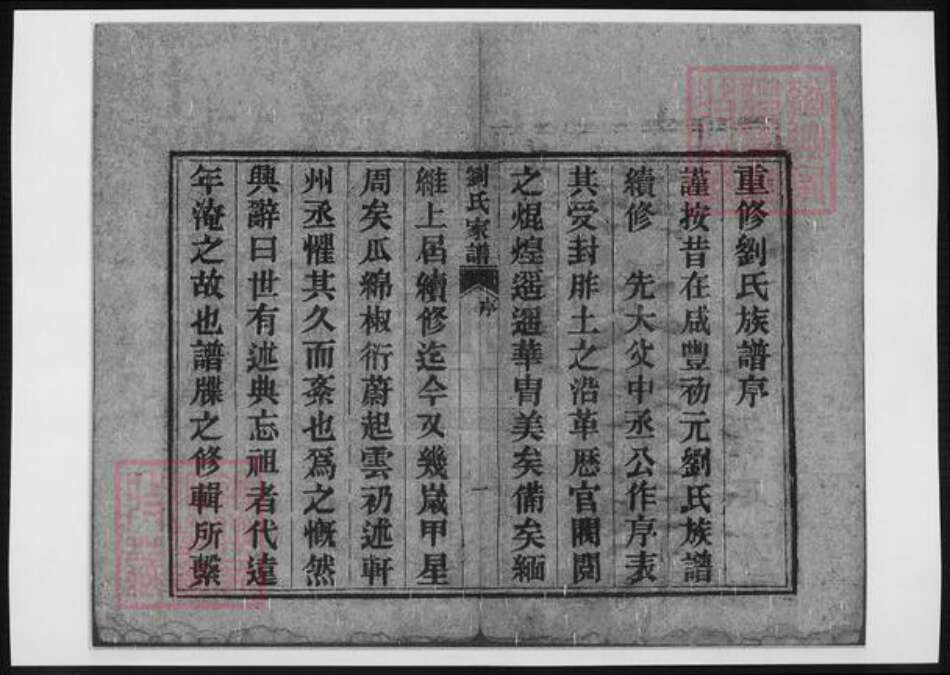 重修劉氏族譜序
謹按昔在咸豐初元劉氏族譜
續修　先大父中丞公作序表
其受封胙土之沿革歷官閥閱
之焜煌遥遥華冑美矣備矣緬
劉氏家譜　序　一
維上屆續修迄今又幾歲甲星
周矣瓜綿椒衍蔚起雲礽述軒
州丞懼其久而紊也爲之慨然
興辭曰世有述典忘祖者代遠
年淹之故也譜牒之修輯所繫